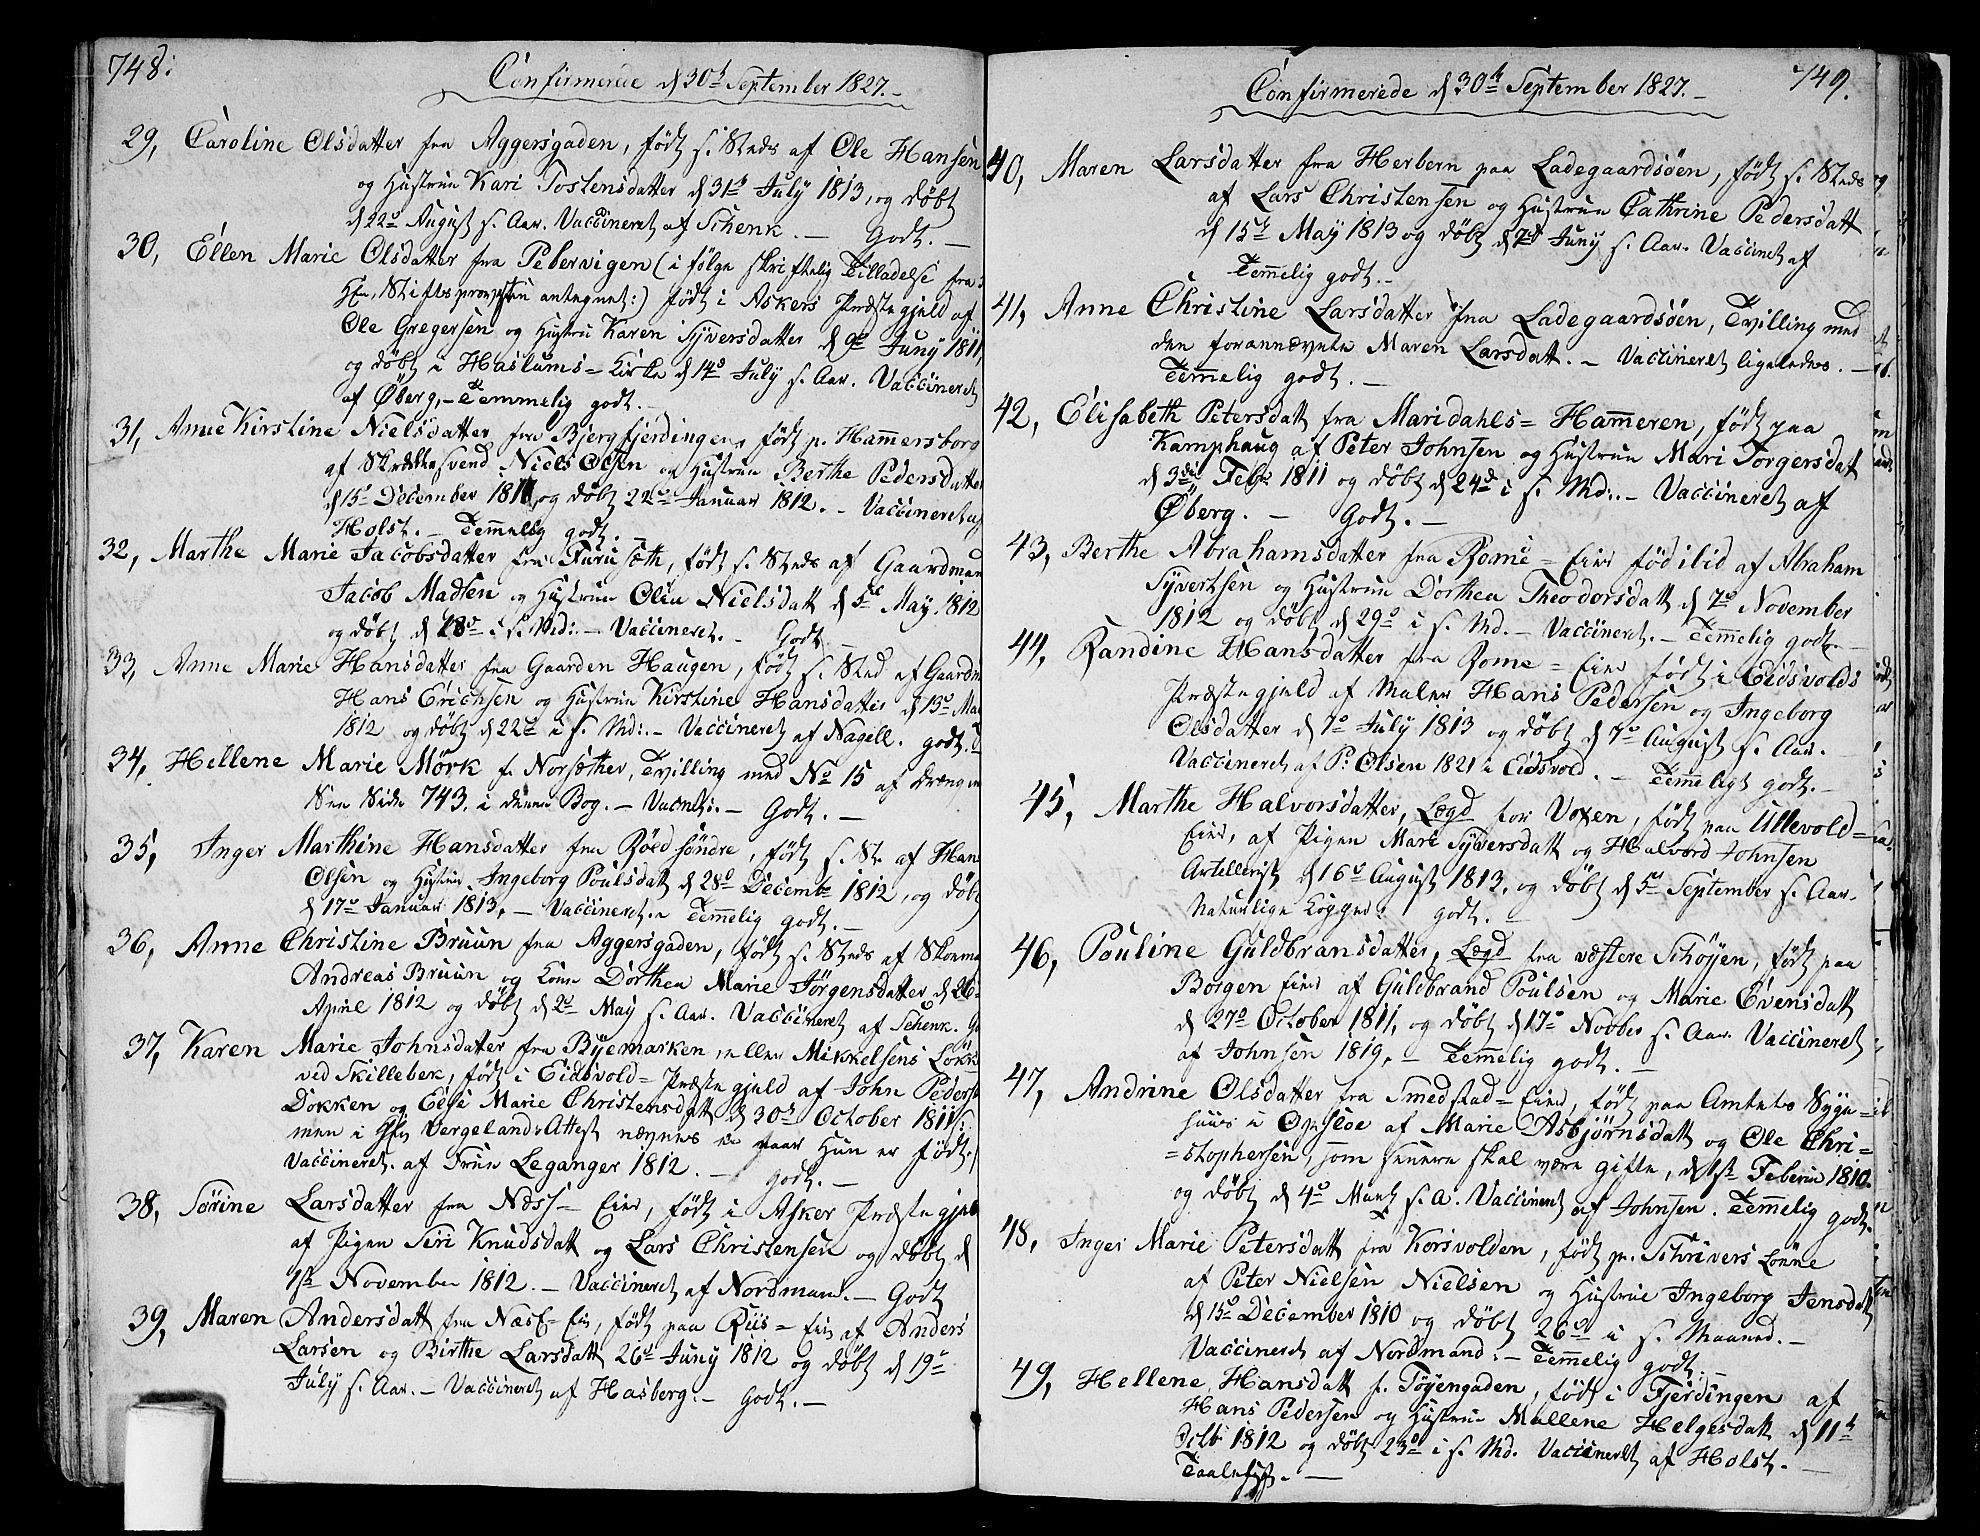 748.
Confirmerede d 30t September 1827.-
29, Caroline Olsdatter fra Aggersgaden, født s. Steds af Ole Hansen
og Hustrue Kari Tostensdatter d 31te July 1813, og døbt
d 22d August s. Aar. Vaccineret af Schenk. - Godt. -
30, Ellen Marie Olsdatter fra Pebervigen (i følge skriftelig Tilladelse fra
Hr. Stiftsprovsten antegnet:) født i Askers Præstegjeld af
Ole Gregersen og Hustru Karen Syversdatter d 9de Juny 1811,
og døbt i Haslums = Kirke d 14d July s. Aar. Vaccineret
af Øberg, - Temmelig godt. -
31, Anne Kirstine Nielsdatter fra Bjergfjerdingen, født p. Hammersborg
af Skræddersvend Niels Olsen og Hustrue Berthe Pedersdatter
d 15d December 1811, og døbt 22d Januar 1812. - Vaccineret af
Holst. - Temmelig godt. -
32, Marthe Marie Jacobsdatter fra Furusæth, født s. Steds af Gaardmand
Jacob Madsen og Hustrue Olia Nielsdatt d 5te May 1812
og døbt d 18d i s. Md: - Vaccineret. - Godt. -
33, Anne Marie Hansdatter fra Gaarden Haugen, født s. Sted af Gaardm
Hans Erichsen og Hustrue Kirstine Hansdatter d 13d Ma
1812 og døbt d 22d i s. Md: - Vaccineret af Nagell. godt.
34, Hellene Marie Mørk f. Norsæther, Tvilling med No 15 af Drengene
See Side 743. i denne Bog. - Vacnt: - Godt. -
35, Inger Marthine Hansdatter fra Røed søndre, født s. St. af Hans
Olsen og Hustrue Ingeborg Poulsdatt d 28d Decembr 1812, og døbt
d 17d Januar 1813, - Vaccineret. Temmelig godt. -
36, Anne Christine Bruun fra Aggersgaden, født s. Steds af Skoema
Andreas Bruun og Kone Dorthea Marie Jørgensdatter d 26
April 1812 og døbt d 2d May s. Aar. Vaccineret af Schenk. Go
37, Karen Marie Johnsdatter fra Byemarken, eller Mikkelsens Løkke
ved Skillebek, født i Eidsvold = Præstegjeld af John Peders
Dokken og Else Marie Christensdatt d 30t October 1811 (:
men i Hr Vergelands Attest nævnes ei naar Hun er født.)
Vaccineret. af Frue Leganger 1812. - Godt. -
38, Sørine Larsdatter fra Næss - Eier, født i Asker Præstegjeld
af Pigen Siri Knudsdatt og Lars Christensen og døbt d
1st November 1812. - Vaccineret af Nordmand. - Godt
39, Maren Andersdatt fra Næss- Eie, født paa Riis = Eie af Anders
Larsen og Birthe Larsdatt 26d Juny 1812 og døbt d 19d
July s. Aar. - Vaccineret af Hasberg. - Godt. -
749.
Confirmerede d 30te September 1827. -
40, Maren Larsdatter fra Herbern paa Ladegaardsøen, født s. Steds
af Lars Christensen og Hustrue Cathrine Pedersdatt
d 15de May 1813 og døbt d Juny s. Aar. Vaccineret af
Temmelig godt. -
41, Anne Christine Larsdatter fra Ladegaardsøen, Tvilling med
den forannævnte Maren Larsdatt. - Vaccineret ligeledes. -
Temmelig godt. -
42, Elisabeth Petersdatt fra Maridahls = Hammeren, født paa
Kamphaug af Peter Johnsen og Hustrue Mari Torgersdatt
d 3de Febr. 1811 og døbt d 24d i s. Md: - Vaccineret af
Øberg. - Godt. -
43, Berthe Abrahamsdatter fra Rome = Eier fød ibid af Abraham
Syvertsen og Hustrue Dorthea Theodorsdatt d 7d November
1812 og døbt d 29d i s. Md. - Vaccineret. - Temmelig godt. -
44, Randine Hansdatter fra Rome = Eier født i Eidsvolds
Præstegjeld af Maler Hans Pedersen og Ingeborg
Olsdatter d 7d July 1813 og døbt d 7d August s. Aar.
Vaccineret af P. Olsen 1821 i Eidsvold. - Temmeligt godt. -
45, Marthe Halvorsdatter, Lægd for Voxen, født paa Ullevold =
Eier, af Pigen Mari Syversdatt og Halvord Johnsen
Artellerist d 16d August 1813, og døbt d 5te September s. Aar.
Naturlige Kopper. godt. -
46, Pouline Guldbransdatter, Lægd fra vestere Schøyen, født paa
Borgen Eier af Guldbrand Poulsen og Marie Evensdatt
d 27d October 1811, og døbt d 17d Novber s. Aar. Vaccineret
af Johnsen 1819, - Temmelig godt. -
47, Andrine Olsdatter fra Smedstad = Eier, født paa Amtets Syge =
huus i Opsloe af Marie Asbjørnsdatt og Ole Chri =
= stophersen, som senere skal være gifte, d 1st Feberu 1810.
og døbt d 4d Mart s. A. Vaccineret af Johnsen. Temmelig godt.
48, Inger Marie Petersdatt fra Korsvolden, født p. Schrivers Lønne
af Peter Nielsen Nielsen og Hustrue Ingeborg Jensdatt
d 15d December 1810 og døbt 26d i s. Maaned. -
Vaccineret af Nordmand. - Temmelig godt. -
49, Hellene Hansdatt f. Tøyengaden, født i Fjerdingen af
Hans Pedersen og Hustrue Mallene Helgesdatt d 11te
Octb 1812 og døbt 23d i s. Md. Vaccineret af Holst. -
Taaleligt. -